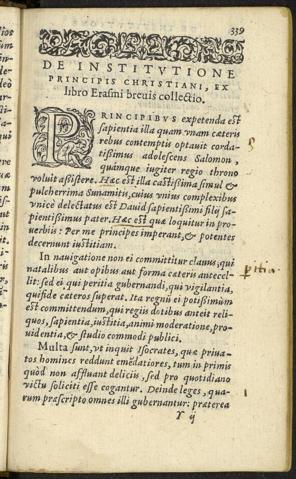 339
DE INSTITVTIONE
PRINCIPIS CHRISTIANI, EX
libro Erasmi breuis collectio.
PRINCIPIBVS expetenda est
sapientia illa quam vnam cæteris
rebus contemptis optauit corda-
tißimus adolescens Salomon,
quámque iugiter regio throno
voluit aßistere. Hæc est illa castißima simul &
pulcherrima Sunamitis, cuius vnius complexibus
vnicè delectatus est Dauid sapientißimi filij sa-
pientißimus pater. Hæc est quæ loquitur in pro-
uerbiis : Per me principes imperant, & potentes
decernunt iustitiam.
In nauigatione non ei committitur clauus, qui
natalibus aut opibus aut forma cæteris antecel-
lit: sed ei qui peritia gubernandi, qui vigilantia,
qui fide cæteros superat. Ita regnū ei potißimùm
est committendum, qui regiis dotibus anteit reli-
quos, sapientia, iustitia, animi moderatione, pro-
uidentia, & studio commodi publici.
Multa sunt, vt inquit Isocrates, quæ priua-
tos homines reddunt emēdatiores, tum in primis
quòd non affluant deliciis, sed pro quotidiano
victu soliciti esse cogantur. Deinde leges, qua-
rum præscripto omnes illi gubernantur: præterea
Y ij